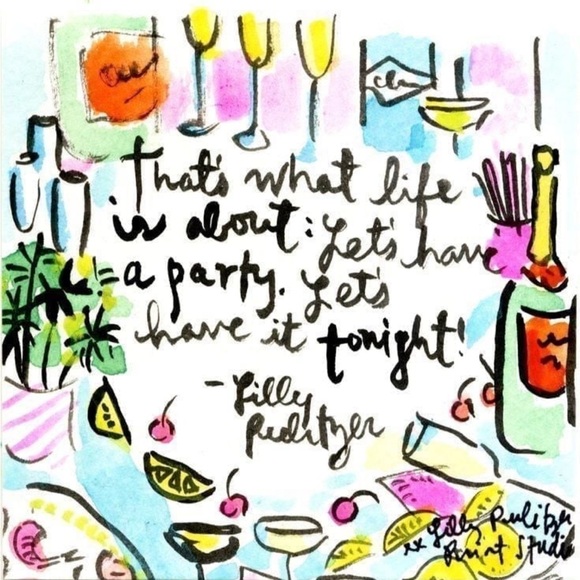 That's what life
is about: Let's have
a party. Let's
have it tonight!
- Lilly
Pulitzer
xx Lilly Pulitzer
Print Studio